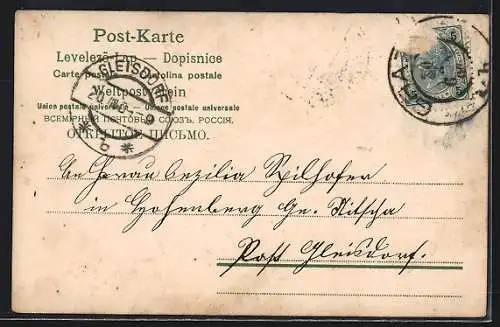 Post-Karte
Levelező-Lap — Dopisnice
Carte postale Cartolina postale
Weltpostverein
Union postale universelle — Unione postale universale
ВСЕМІРНЫЙ ПОЧТОВЫЙ СОЮЗЪ. РОССІЯ.
ОТКРЫТОЕ ПИСЬМО.
GLEISDORF
GRAZ
5
An Frau Cezilia Spilhofer
in Hohenberg Gr. Nitscha
Post Gleisdorf.